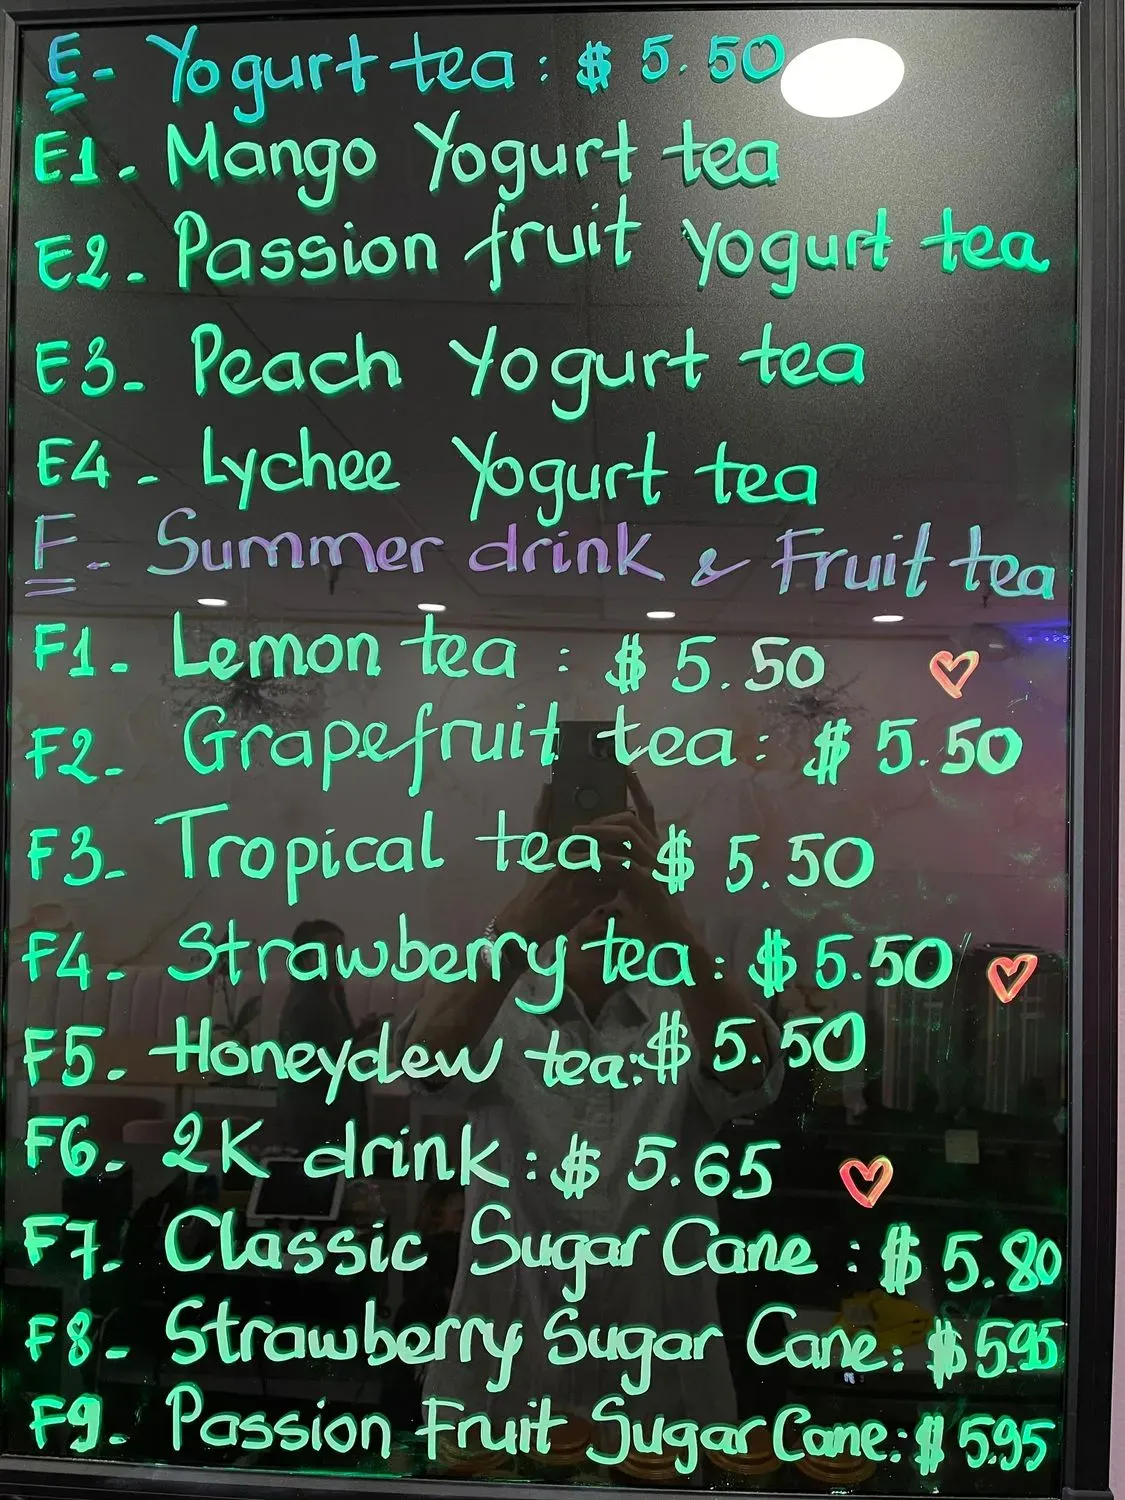 E- Yogurt tea: $ 5.50
E1. Mango Yogurt tea
E2- Passion fruit yogurt tea
E3- Peach Yogurt tea
E4 - Lychee Yogurt tea
F- Summer drink & Fruit tea
F1- Lemon tea : $ 5.50
F2- Grapefruit tea: $ 5.50
F3- Tropical tea: $ 5.50
F4- Strawberry tea: $5.50
F5- Honeydew tea:$ 5.50
F6- 2K drink: $ 5.65
F7- Classic Sugar Cane : $ 5.80
F8- Strawberry Sugar Cane: $ 5.95
F9- Passion Fruit Sugar Cane: $ 5.95